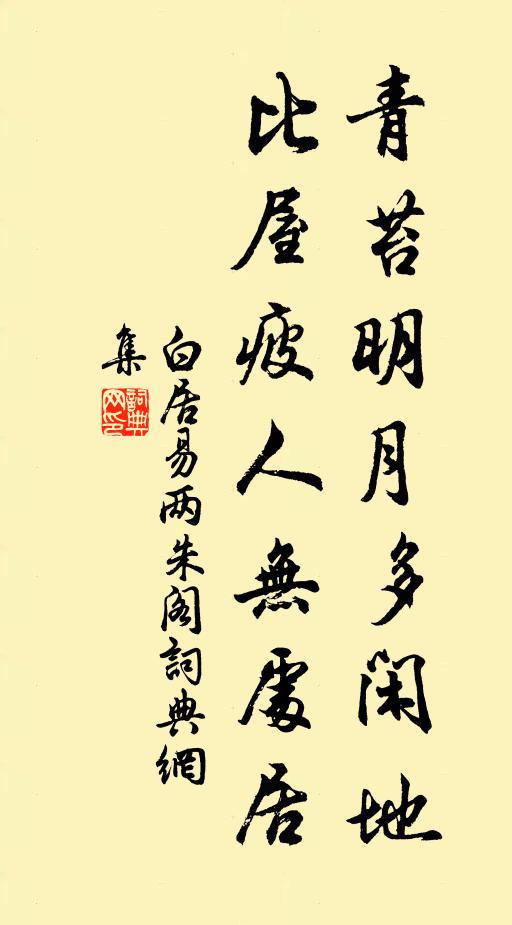 青苔明月多閑地
比屋疲人無處居
白居易两朱阁詞典網
集
詞典
网印